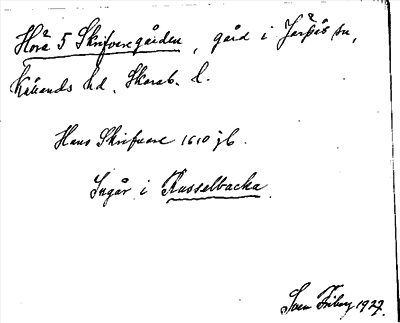 Håra 5 Skrifvaregården, gård i Järpås sn,
Kållands hd, Skarab. l.
Hans Skrifvare 1610 jb.
Ingår i Russelbacka.
Sven Friberg 1927.